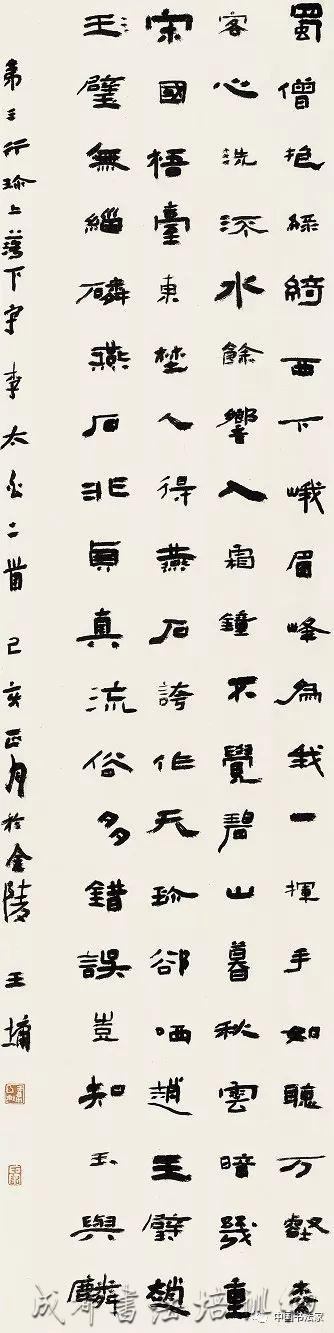 蜀僧抱綠綺西下峨眉峰為我一揮手如聽万壑松
客心洗流水餘響入霜鐘不覺碧山暮秋雲暗幾重
宋國梧臺東埜人得燕石誇作天珍卻哂趙王璧趙
王璧無緇磷燕石非貞真流俗多錯誤豈知玉與麟
第三行珍上落下字李太白二首己亥正月於金陵王墉
成都书法培训
中国书法家